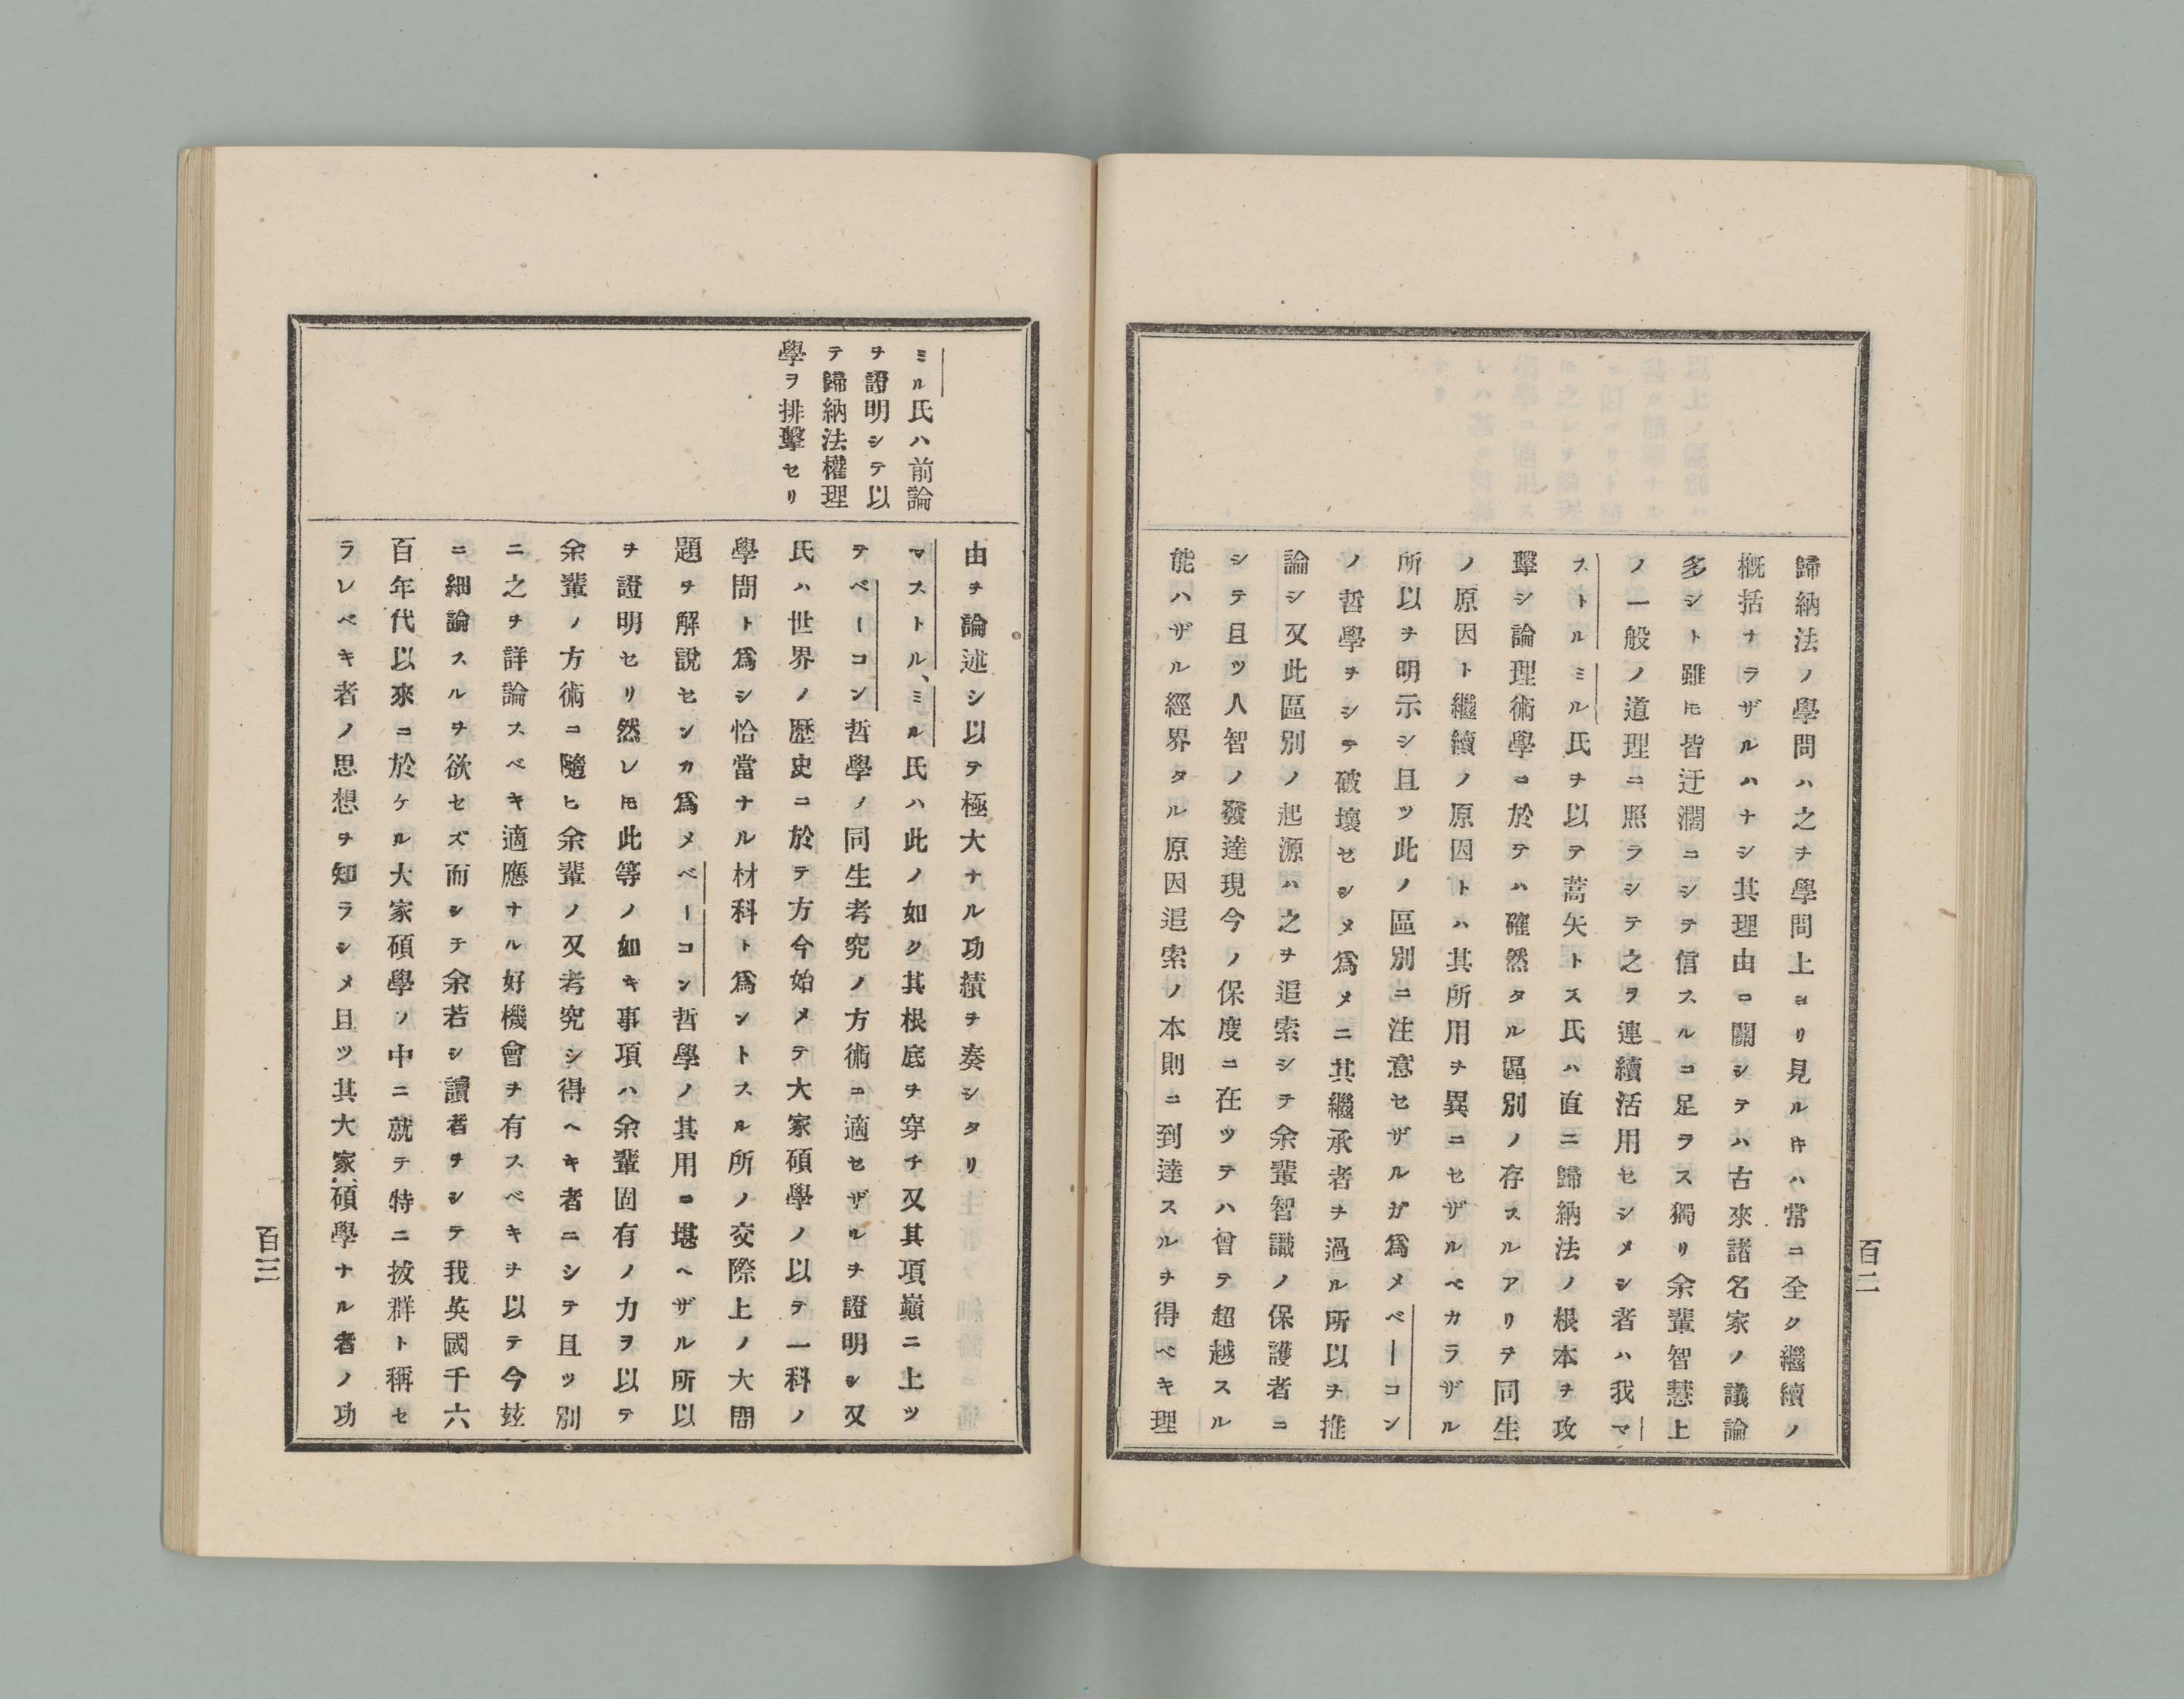 歸納法ノ學問ハ之ヲ學問上ヨリ見ルキハ常ニ全ク繼續ノ
概括ナラザルハナシ其理由ニ關シテハ古來諸名家ノ議論
多シト雖𪜈皆迂濶ニシテ信スルニ足ラス獨リ余輩智慧上
ノ一般ノ道理ニ照ラシテ之ヲ連續活用セシメシ者ハ我マ
ストルミル氏ヲ以テ蒿矢トス氏ハ直ニ歸納法ノ根本ヲ攻
擊シ論理術學ニ於テハ確然タル區別ノ存スルアリヲ同生
ノ原因ト繼續ノ原因トハ其所用ヲ異ニセザルベカラザル
所以ヲ明示シ且ツ此ノ區別ニ注意セザルガ爲メベーコン
ノ哲學ヲシテ破壞セシメ爲メニ其繼承者ヲ過ル所以ヲ推
論シ又此區別ノ起源ハ之ヲ追索シテ余輩智識ノ保護者ニ
シテ且ツ人智ノ發達現今ノ保度ニ在ツテハ曾テ超越スル
能ハザル經界タル原因追索ノ本則ニ到達スルヲ得ベキ理
百二
ミル氏ハ前論
ヲ證明シテ以
テ歸納法權理
學ヲ排擊セリ
由ヲ論述シ以テ極大ナル功績ヲ奏シタリ
マストル、ミル氏ハ此ノ如ク其根底ヲ穿チ又其項巓ニ上ツ
テベーコン哲學ノ同生考究ノ方術ニ適セザルヲ證明シ又
氏ハ世界ノ歷史ニ於テ方今始メテ大家碩學ノ以テ一科ノ
學問ト爲シ恰當ナル材科ト爲ントスル所ノ交際上ノ大問
題ヲ解說センカ爲メベーコン哲學ノ其用ニ堪ヘザル所以
ヲ證明セリ然レ𪜈此等ノ如キ事項ハ余輩固有ノ力ヲ以テ
余輩ノ方術ニ隨ヒ余輩ノ又考究シ得ヘキ者ニシテ且ツ別
ニ之ヲ詳論スベキ適應ナル好機會ヲ有スベキヲ以テ今玆
ニ細論スルヲ欲セズ而シテ余若シ讀者ヲシテ我英國千六
百年代以來ニ於ケル大家碩學ノ中ニ就テ特ニ拔群ト稱セ
ラレベキ者ノ思想ヲ知ラシメ且ツ其大家碩學ナル者ノ功
百三